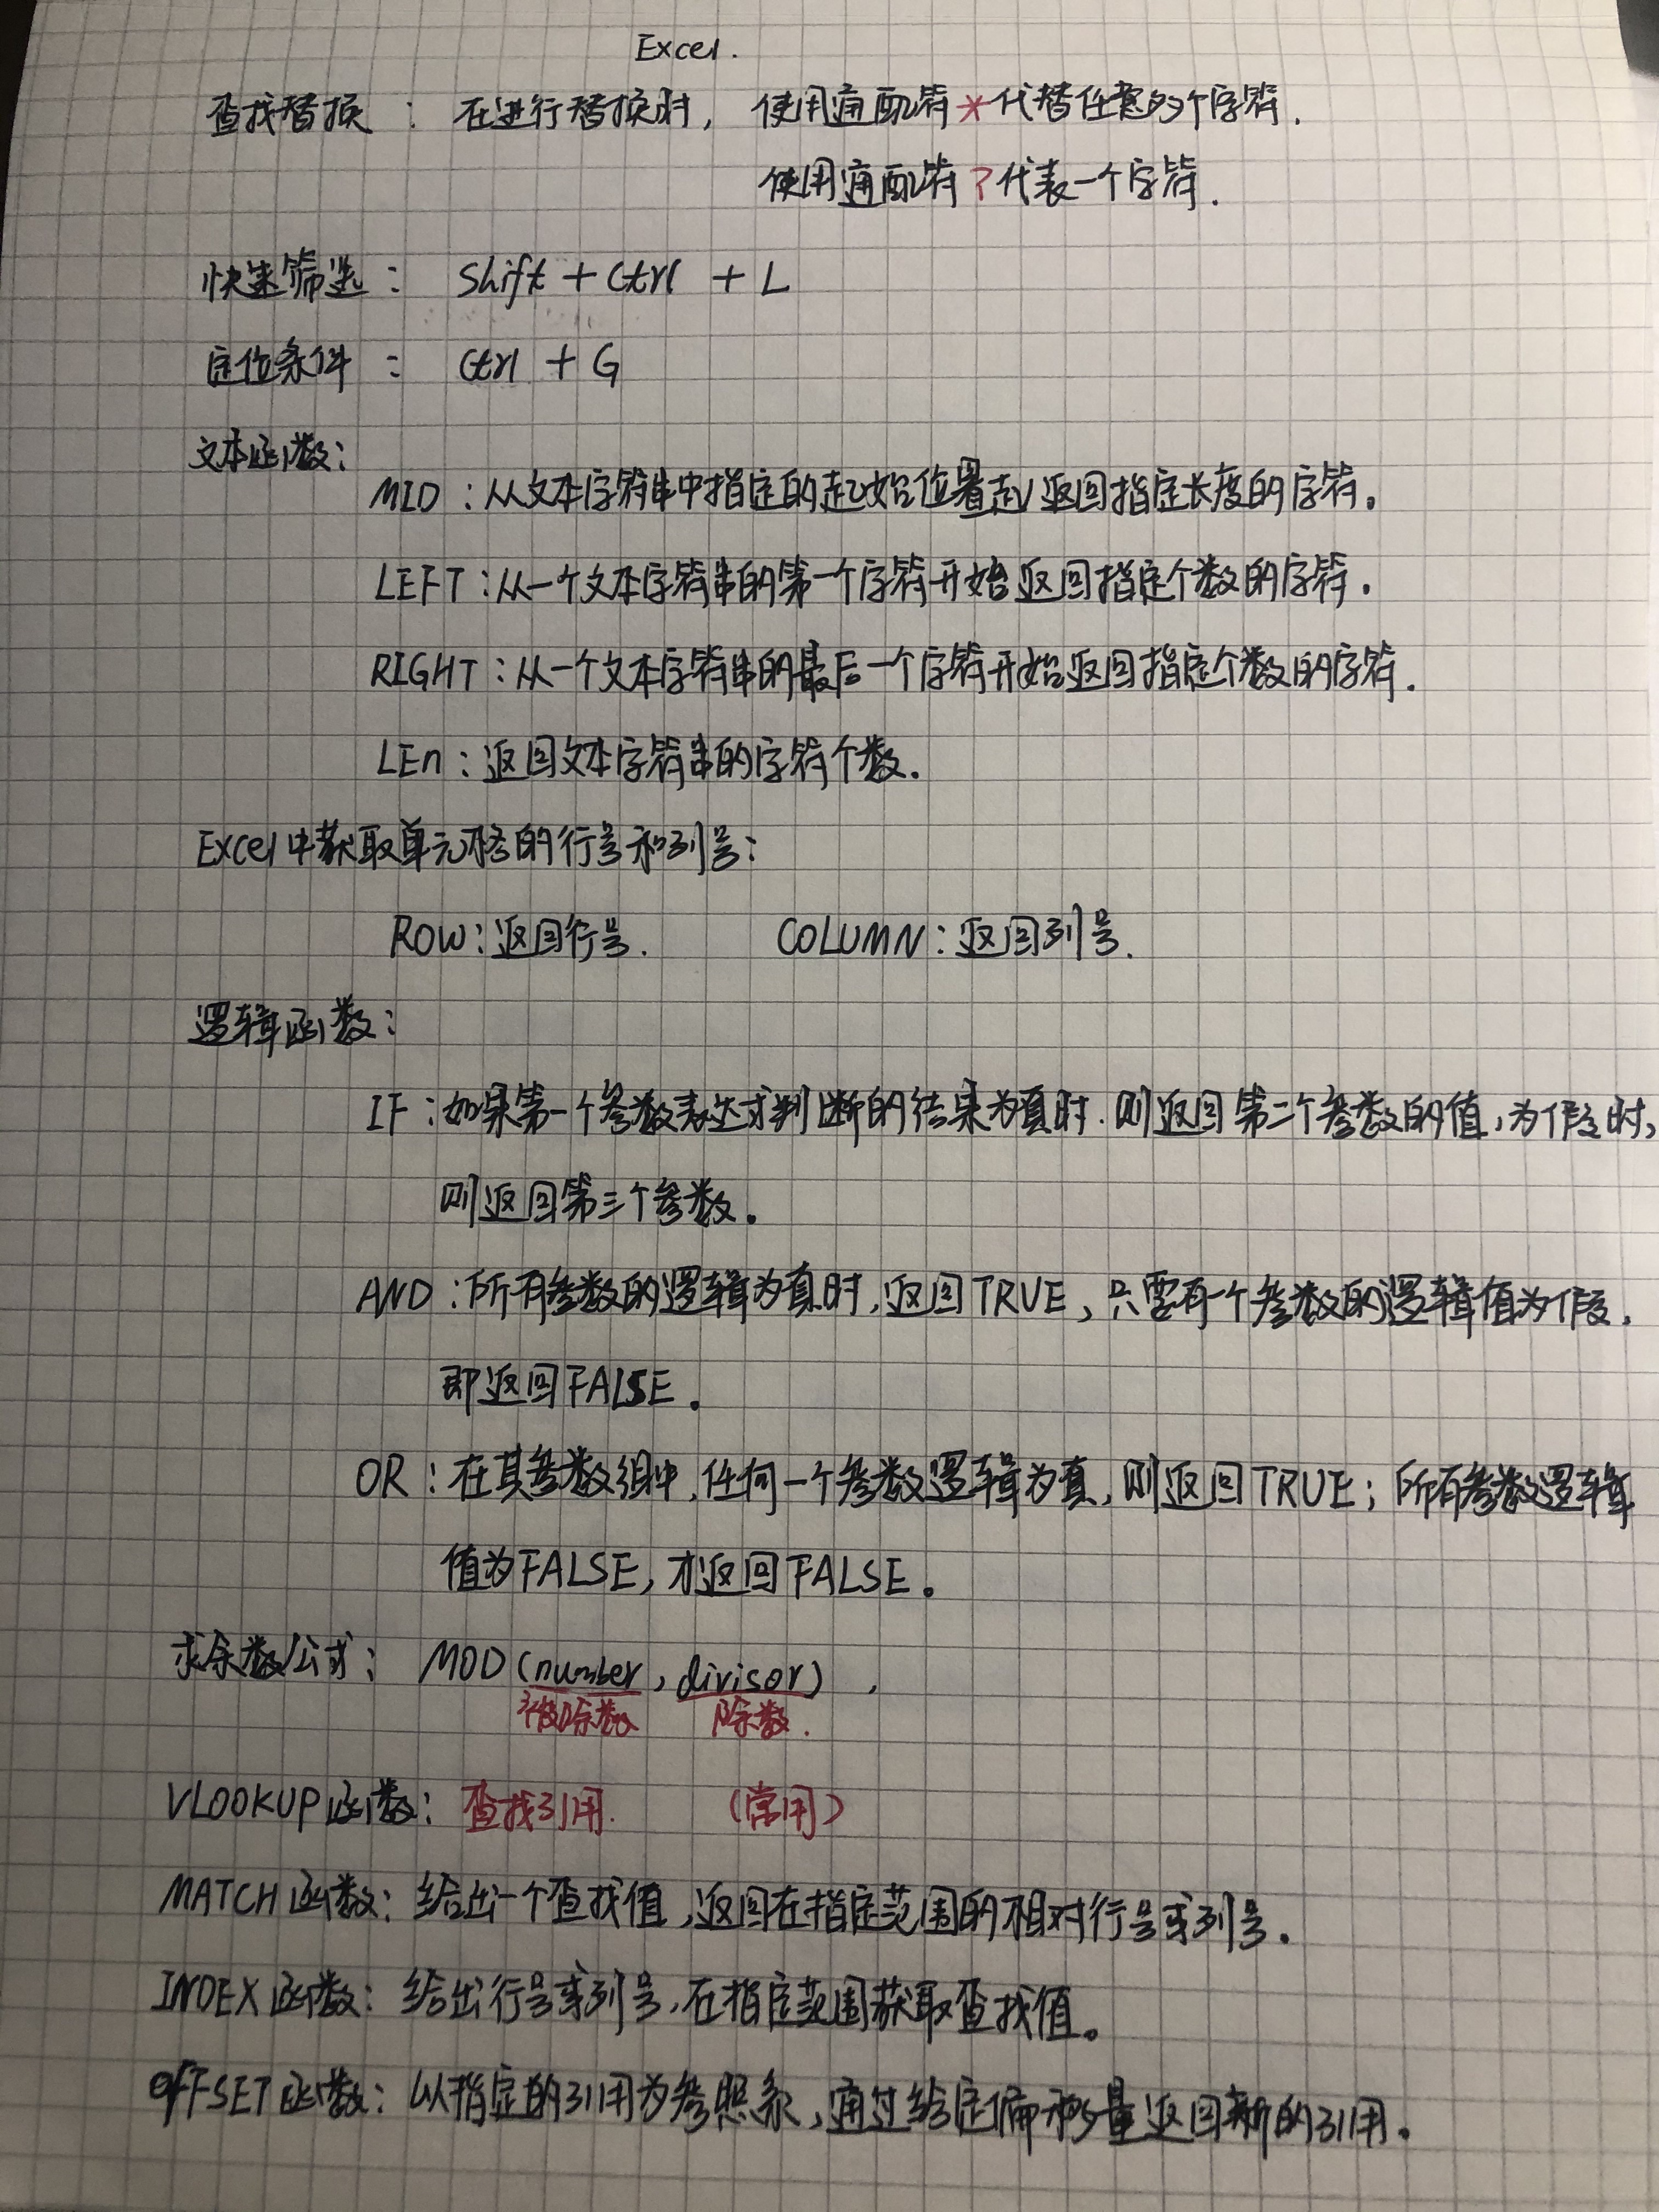 Excel.
查找替换：在进行替换时，使用通配符*代替任意多个字符.
使用通配符?代表一个字符.
快速筛选：Shift + Ctrl + L
定位条件：Ctrl + G
文本函数：
MID：从文本字符串中指定的起始位置起返回指定长度的字符。
LEFT：从一个文本字符串的第一个字符开始返回指定个数的字符.
RIGHT：从一个文本字符串的最后一个字符开始返回指定个数的字符.
LEn：返回文本字符串的字符个数.
Excel中获取单元格的行号和列号：
ROW：返回行号. COLUMN：返回列号.
逻辑函数：
IF：如果第一个参数表达式判断的结果为真时.则返回第二个参数的值，为假时，
则返回第三个参数。
AND：所有参数的逻辑为真时，返回TRUE，只需有一个参数的逻辑值为假，
即返回FALSE。
OR：在其参数组中，任何一个参数逻辑为真，则返回TRUE；所有参数逻辑
值为FALSE，才返回FALSE。
求余数公式：MOD(number, divisor)，
被除数 除数.
VLOOKUP函数：查找引用. （常用）
MATCH函数：给出一个查找值，返回在指定范围的相对行号或列号。
INDEX函数：给出行号或列号，在指定范围获取查找值。
OFFSET函数：以指定的引用为参照系，通过给定偏移量返回新的引用。